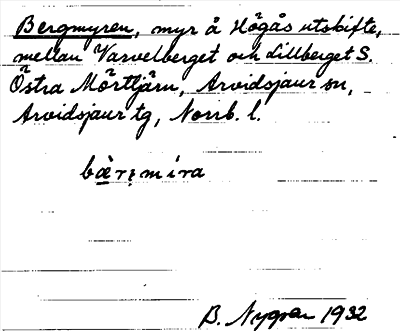 Bergmyren, myr å Högås utskifte,
mellan Varvelberget och Lillberget S.
Östra Mörttjärn, Arvidsjaur sn,
Arvidsjaur tg, Norrb. l.
bæ̀rmíra
B. Nygren 1932